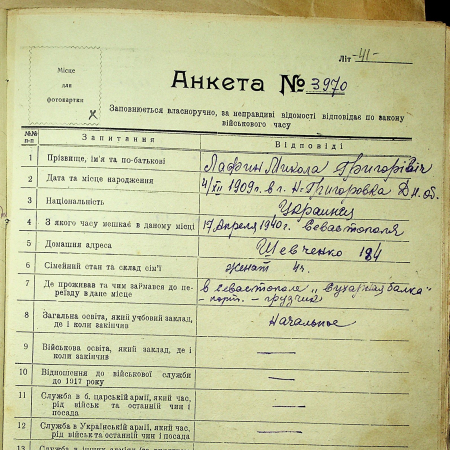 Літ -41-
Місце
для
фотокартки
Анкета № 3970
Заповнюється власноручно, за неправдиві відомості відповідає по закону
військового часу
№№
п-п
Запитання
Відповіді
1 Прізвище, ім'я та по-батькові Лафин Микола Григорівіч
2 Дата та місце народження 4/XII 1909 г. в с. Н-Григоровка Дн. об.
3 Національність Украинец
4 З якого часу мешкає в даному місці 17 Апреля 1940 г. Севастополя
5 Домашня адреса Шевченко 184
6 Сімейний стан та склад сім'ї женат 4ч.
7 Де проживав та чим займався до пе-
реїзду в дане місце
в Севастополе „Сухарная балка"
- порт. - грузчик
8 Загальна освіта, який учбовий заклад,
де і коли закінчив
Начальное
9 Військова освіта, який заклад, де і
коли закінчив —
10 Відношення до військової служби
до 1917 року —
11 Служба в б. царській армії, який час,
рід військ та останній чин і
посада —
12 Служба в Українській армії, який час,
рід військ та останній чин і посада —